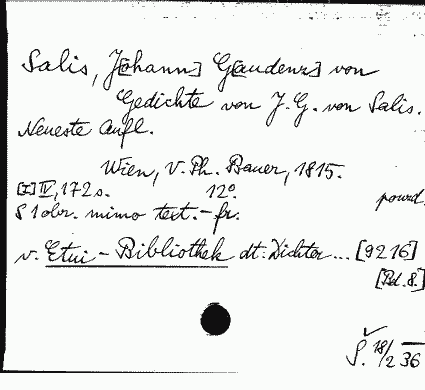 Salis, J[ohann] G[audenz] von
Gedichte von J. G. von Salis.
Neueste Aufl.
Wien, V. Ph. Bauer, 1815.
[I] IV, 172 s. 12°.
S 1 obr. mimo text. - fr.
v. Etui - Bibliothek dt. Dichter ... [9216]
[Bd. 8.]
Š. 18/2 36